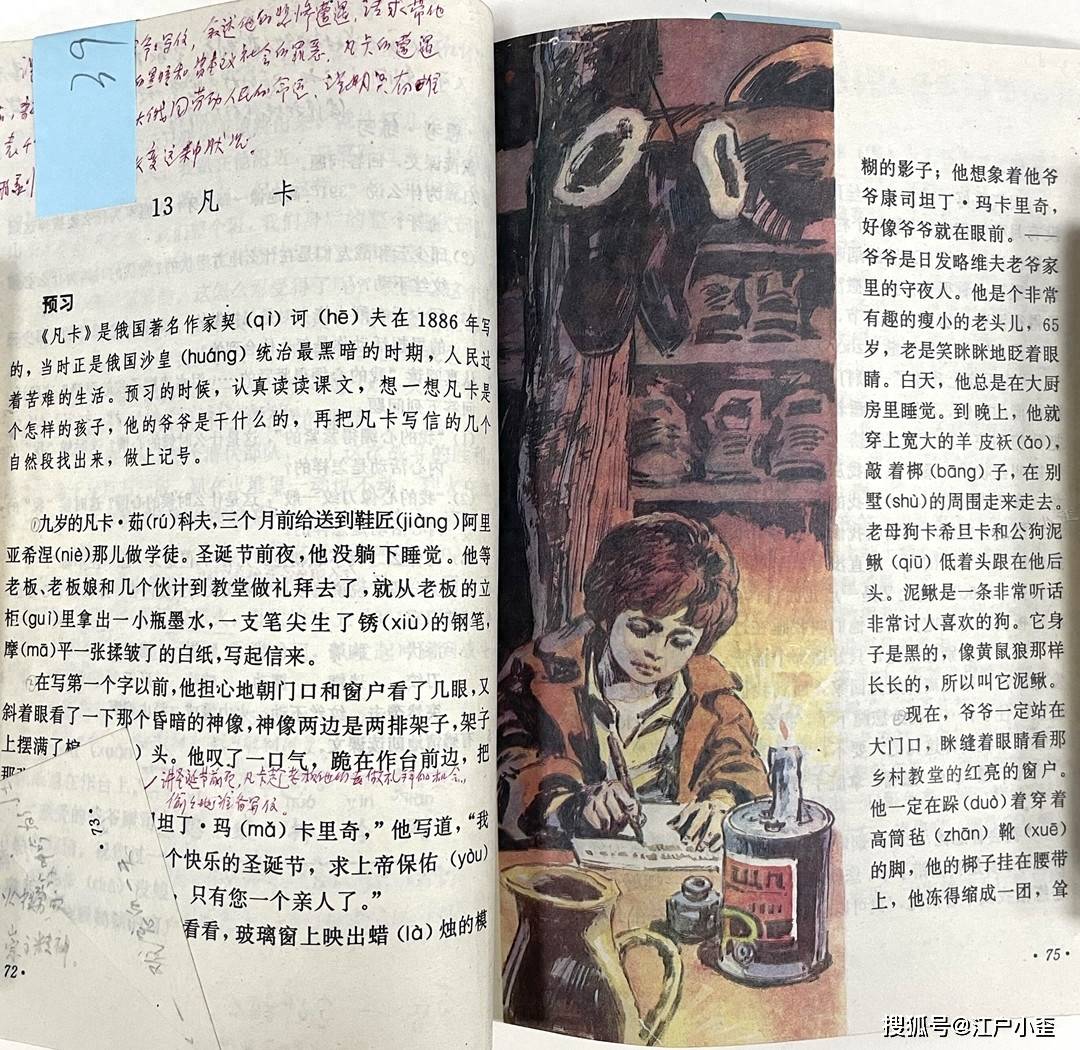 39
13 凡 卡
预习
《凡卡》是俄国著名作家契(qì)诃(hē)夫在1886年写
的，当时正是俄国沙皇(huáng)统治最黑暗的时期，人民过
着苦难的生活。预习的时候，认真读读课文，想一想凡卡是
个怎样的孩子，他的爷爷是干什么的，再把凡卡写信的几个
自然段找出来，做上记号。
①九岁的凡卡·茹(rú)科夫，三个月前给送到鞋匠(jiàng)阿里
亚希涅(niè)那儿做学徒。圣诞节前夜，他没躺下睡觉。他等
老板、老板娘和几个伙计到教堂做礼拜去了，就从老板的立
柜(guì)里拿出一小瓶墨水，一支笔尖生了锈(xiù)的钢笔，
摩(mā)平一张揉皱了的白纸，写起信来。
②在写第一个字以前，他担心地朝门口和窗户看了几眼，又
斜着眼看了一下那个昏暗的神像，神像两边是两排架子，架子
上摆满了楦 )头。他叹了一口气，跪在作台前边，把
坦丁·玛(mǎ)卡里奇，”他写道，“我
个快乐的圣诞节，求上帝保佑(yòu)
只有您一个亲人了。”
看看，玻璃窗上映出蜡(là)烛的模
·73·
72·
糊的影子；他想象着他爷
爷康司坦丁·玛卡里奇，
好像爷爷就在眼前。——
爷爷是日发略维夫老爷家
里的守夜人。他是个非常
有趣的瘦小的老头儿，65
岁，老是笑眯眯地眨着眼
睛。白天，他总是在大厨
房里睡觉。到晚上，他就
穿上宽大的羊皮袄(ǎo)，
敲着梆(bāng)子，在别
墅(shù)的周围走来走去。
老母狗卡希旦卡和公狗泥
鳅(qiū)低着头跟在他后
头。泥鳅是一条非常听话
非常讨人喜欢的狗。它身
子是黑的，像黄鼠狼那样
长长的，所以叫它泥鳅。
现在，爷爷一定站在
大门口，眯缝着眼睛看那
乡村教堂的红亮的窗户。
他一定在跺(duò)着穿着
高筒毡(zhān)靴(xuē)
的脚，他的梆子挂在腰带
上，他冻得缩成一团，耸
·75·
搜狐号@江户小歪